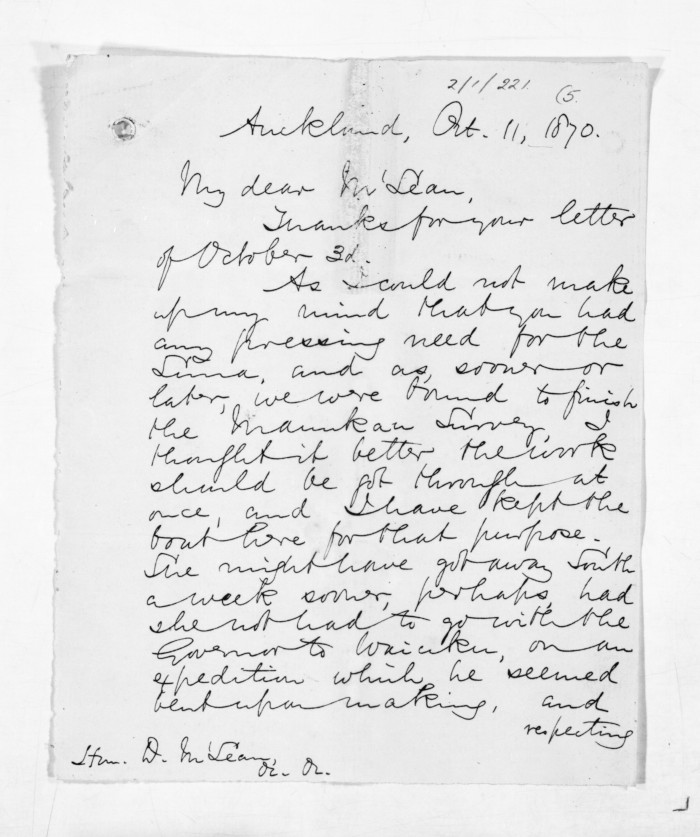 2/1/221 (5.
Auckland, Oct. 11, 1870.
My dear McLean,
Thanks for your letter
of October 3d.
As I could not make
up my mind that you had
any pressing need for the
and as, sooner or
later, we were bound to finish
the Manukau Survey, I
thought it better the work
should be got through at
once, and I have kept the
boat here for that purpose.
She might have got away South
a week sooner, perhaps, had
she not had to go with the
Governor to Waiuku, on an
expedition which he seemed
bent upon making, and
respecting
Hon. D. McLean
&c. &c.